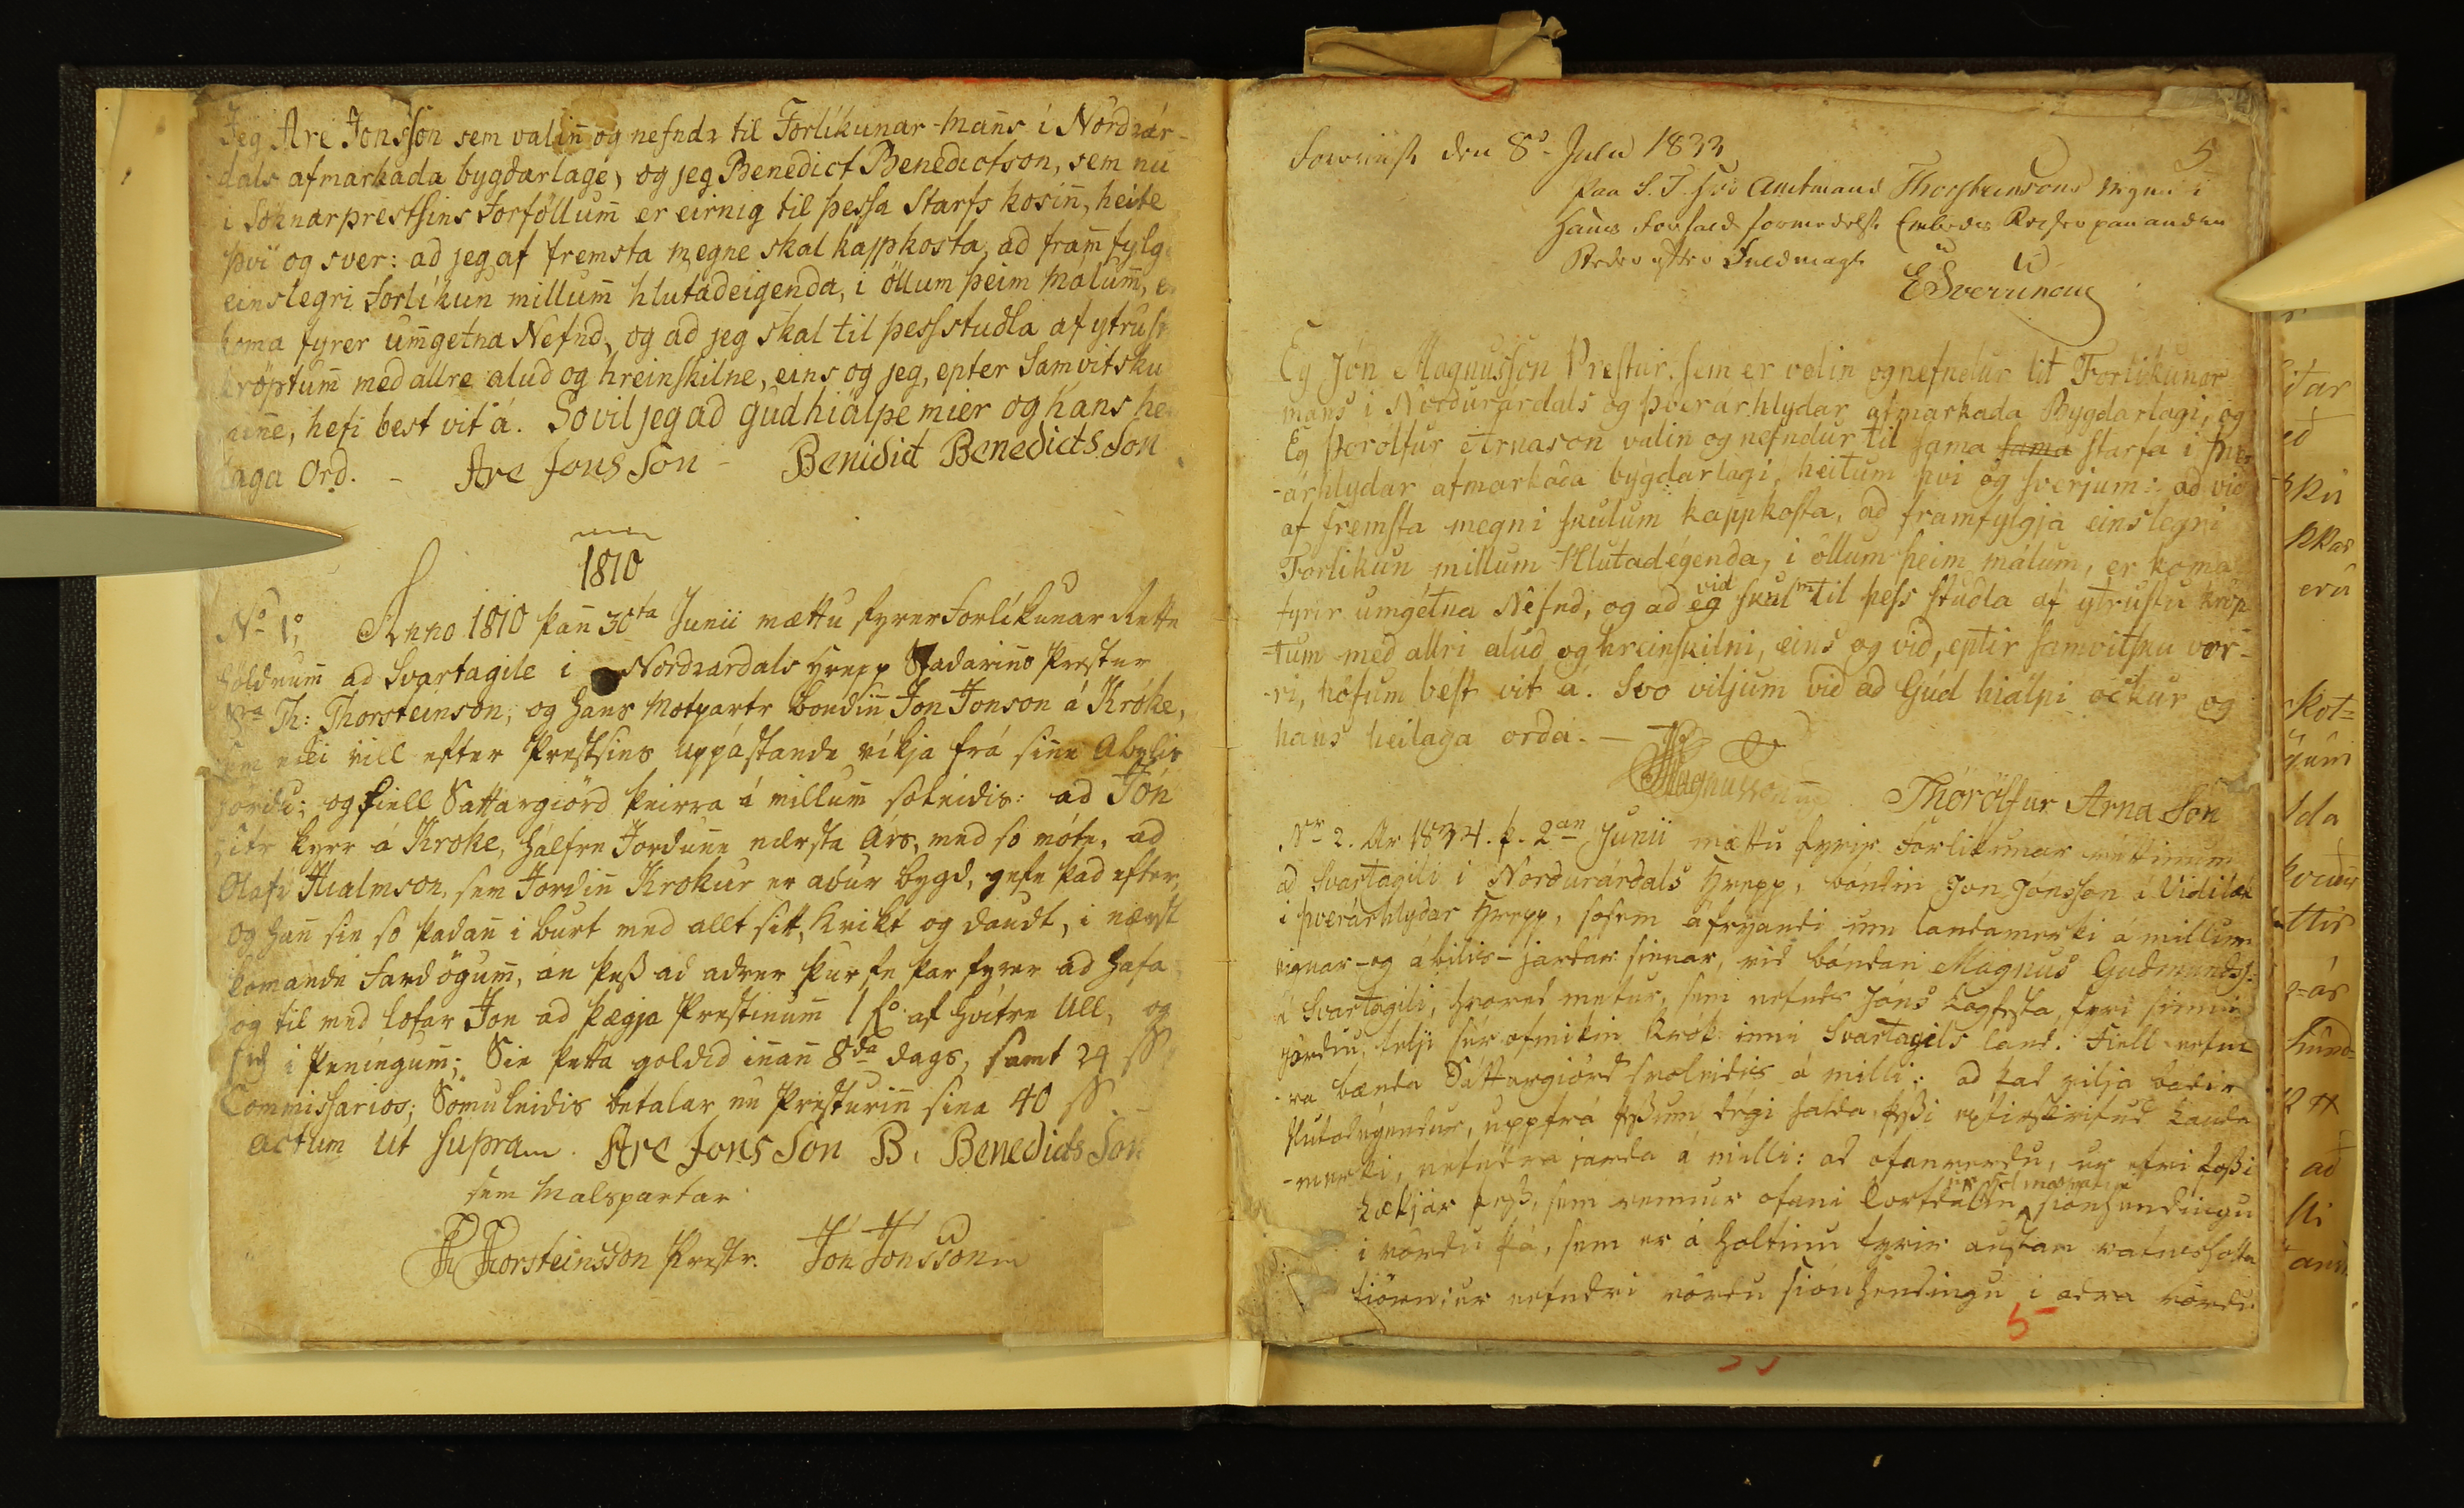 Jeg Are Jonsson sem valin̄ og nefndr til Forlíkunar-man̄s í Nordrár-
dals afmarkada bygdarlage, og jeg Benedict Benedictson, sem nu
i Soknarprestsins Forföllum̄ er eirnig til þessa Starfs kosin̄, heite
því og sver: ad jeg af fremsta megne skal kappkosta, ad fram̄fylg
einslegri Forlíkun millum̄ hlutadeigenda, i öllum þeim Malum̄, e
koma fyrer um̄getna Nefnd, og ad jeg skal til þess studla af ytrust
kröptum̄ med allre alud og hreinskilne, eins og jeg, epter Samvitsku
min̄e, hefi best vit á. So vil jeg ad gud hiálpe mier og hans he
laga Ord. - Are Jons Son - Benidict Benedicts Son
1810
No 1. Anno 1810 þan̄ 30ta Junii mættu fyrer Forlíkunar Rette
höldnum̄ ad Svartagile i Nordrardals Hrepp Stadarins Prestur
Sra Th: Thorsteinson, og hans Motpartr bondin̄ Jon Jonson á Króke,
sem ecki vill efter Prestsins uppástande víkja frá sin̄e Abylis
jördu; og fiell Sattargiörd þeirra á millum̄ soleidis: ad Jón
sitr kyrr á Kroke, hálfre Jordun̄e nærsta Árs, med so móte, ad
Olafr Hialmson, sem Jordin̄ Krokur er adur bygd, gefe þad efter,
og han̄ sie so þadan̄ i burt med allt sitt, kvikt og daudt, i nærst
komande Fardögum̄, án þess ad adrer þurfe þar fyrer ad hafa
og til med lofar Jon ad þægja Prestinum̄ 1 af hvítre Ull, og
i Peningum̄; Sie þetta goldid in̄an̄ 8da dags, samt 24 ß
Commissarios; Sömuleidis betalar nu Presturin̄ sina 40 ß
actum ut supra. Are Jons Son B. Benedicts Son
sem Malspartar
Th Thorsteinsson Prestr. Jón Jónsson
den 8de Julii 1833 5
paa S. T. Hr. Amtmand Thorsteinsons Vegne i
Hans Forfald formedelst Embeds Reiser paa anden
Steder efter Fuldmagt
E Sverrinson
Eg Jón Magnusson Prestur, sem er valin og nefndur til Forlikunar
mans i Nordurárdals og Þverárhlydar afmarkada Bygdarlagi, og
Eg Þorólfur Arnason valin og nefndur til sama sama starfa i Þver
-árhlydar afmarkada bygdarlagi, heitum þvi og sverjum: ad vid
af fremsta megni skulum kappkosta, ad framfylgja einslegri
Forlikun millum Hlutadegenda, i öllum þeim málum, er koma
fyrir umgétna Nefnd, og ad eg vid skulm til þess studla af ytrustu kröp
-tum med allri alud og hreinskilni, eins og vid, eptir samvitsku vor-
-ri, höfum best vit á. Svo viljum vid ad Gud hiálpi ockur og
hans heilaga orda. —
Magnusson Thórólfur Arna Son
Nr 2. Ar 1834. þ. 2an Junii mættu fyrir Forlikunar réttinum
ad Svartagili i Nordurárdals Hrepp, bóndin Jon Jónsson á Vidilæk
i Þverárhlydar Hrepp, sosem áfryandi um landamerki á millum
eignar- og ábilis-jardar sinnar, vid bóndan Magnus Gudmundss:
á Svartagili, hvored metur, sem nefndr Jóns Lagfesta, fyri sinni
jördu, telji sér ofmikin krók inni Svartagils land. Fiell nefnd
-ra bænda Sáttargiörd svoleidis á milli: ad þad vilja badir
Hlutadegendur, uppfrá þessum degi halda þessi eptirskrifud Landa
-merki, nefndra jarda á milli: ad ofanverdu, ur efri fossi
Lækjar þess, sem rennur ofani siónhendingu
i vördu þá, sem er á holtinu fyrir austan
tiörn; ur nefndri vördu siónhendingu i adra vördu
5